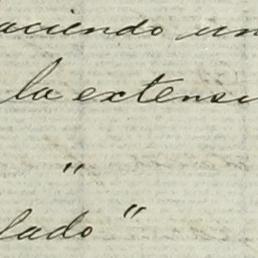 aciendo un
la extensi
"
lado "